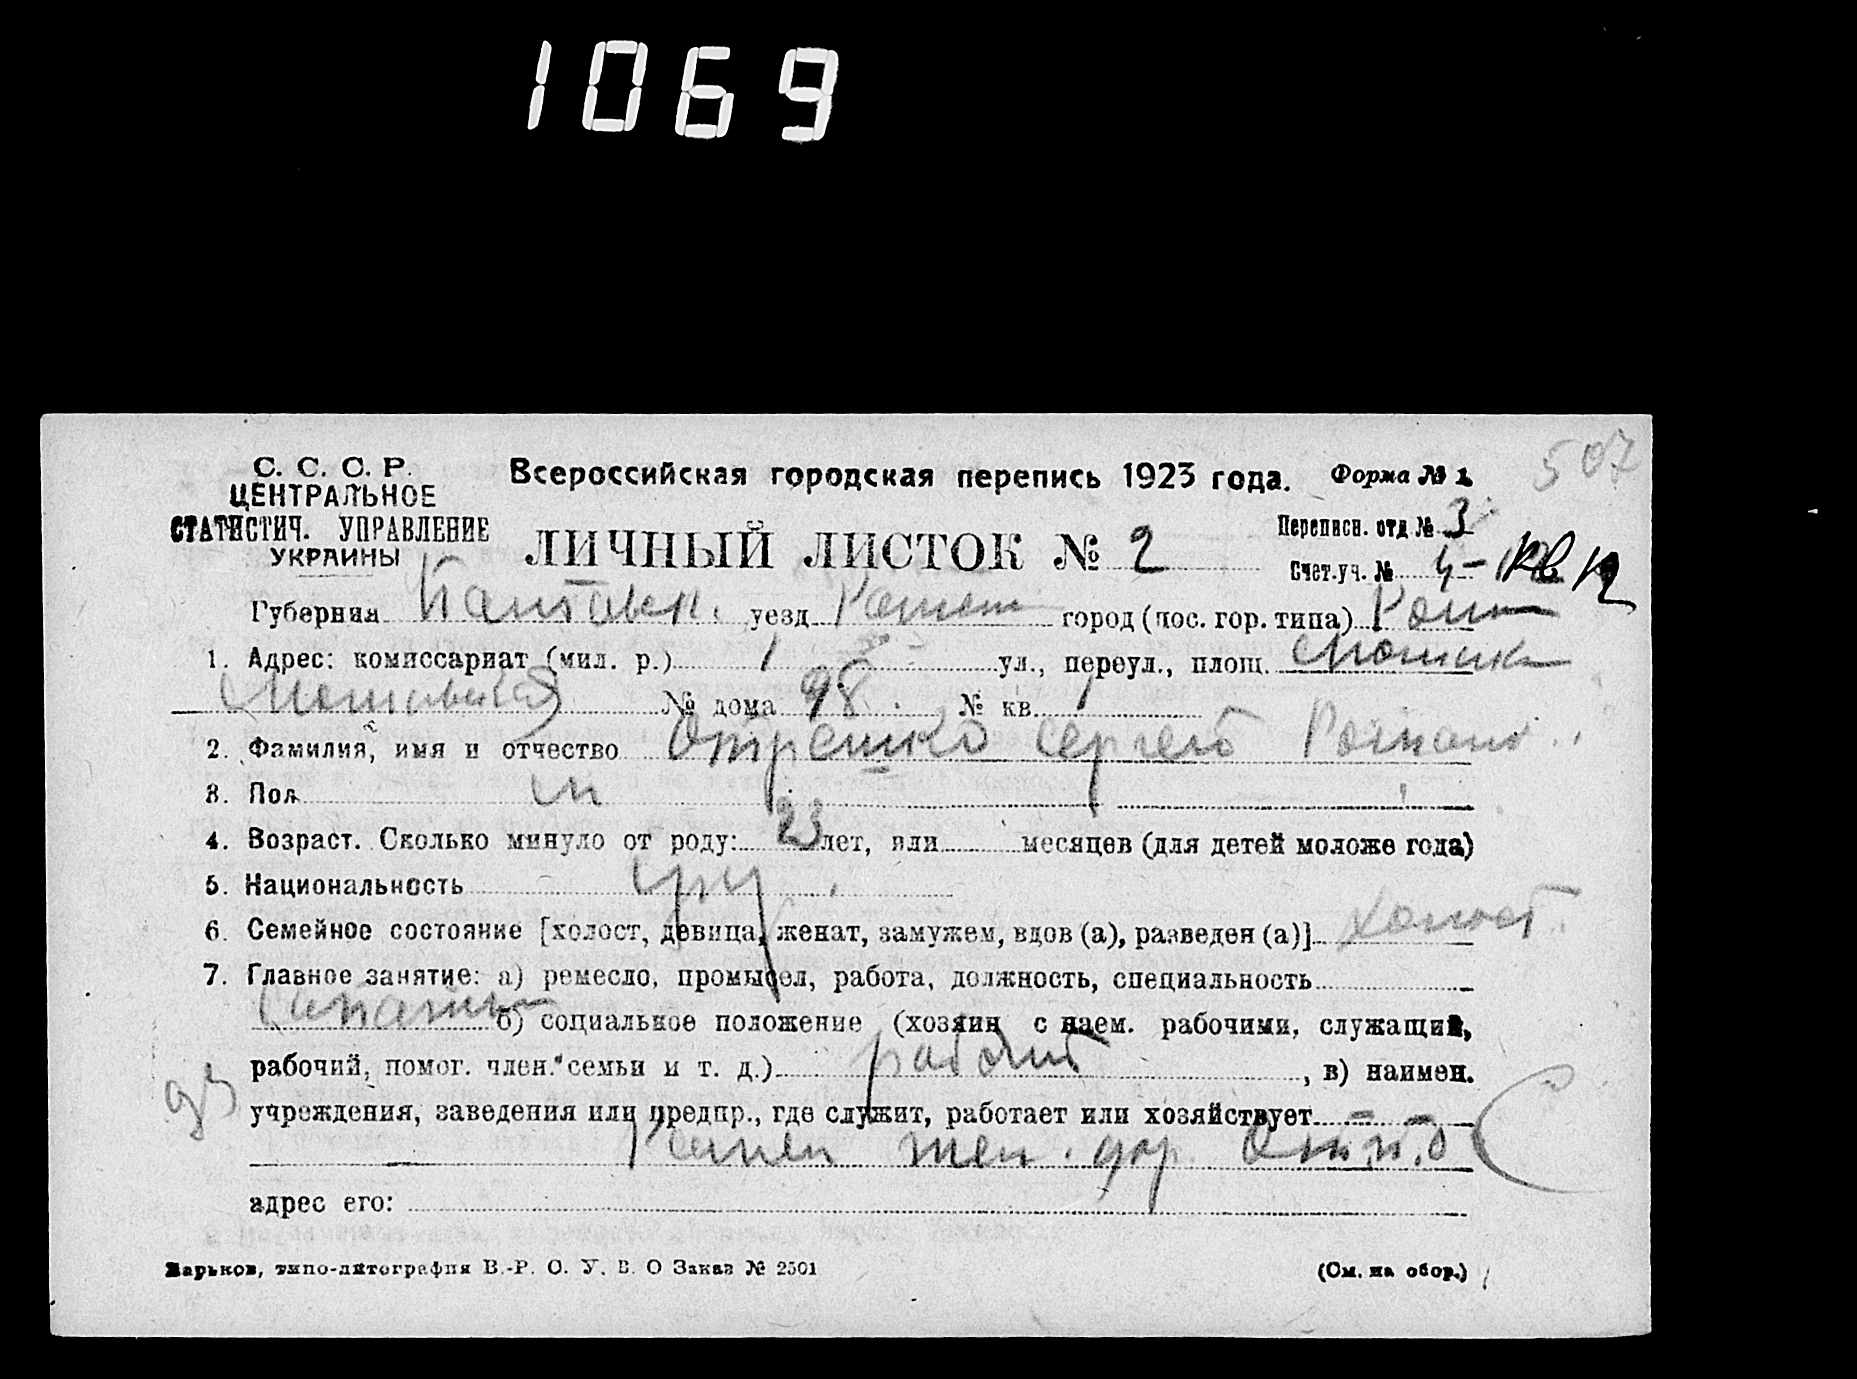 1069
507
С. С. С. Р.
ЦЕНТРАЛЬНОЕ
СТАТИСТИЧ. УПРАВЛЕНИЕ
УКРАИНЫ
Всероссийская городская перепись 1923 года. Форма № 1
ЛИЧНЫЙ ЛИСТОК № 2
Переписн. отд. № 3
Счет. уч. № 4 –
Губерния Полтавск. уезд Ромен город (пос. гор. типа) Ромн
1. Адрес: комиссариат (мил. р.) 1 ул., переул., площ.
№ дома 98 № кв. 1
2. Фамилия, имя и отчество Отрешко Сергей Роман.
3. Пол м
4. Возраст. Сколько минуло от роду: 23 лет, или месяцев (для детей моложе года)
5. Национальность укр
6. Семейное состояние [холост, девица, женат, замужем, вдов (а), разведен (а)] холост
7. Главное занятие: а) ремесло, промысел, работа, должность, специальность
б) социальное положение (хозяин с наем. рабочими, служащий,
рабочий, помог. член. семьи и т. д.) рабочий, в) наимен.
учреждения, заведения или предпр., где служит, работает или хозяйствует
Ромен жел. дор.
адрес его:
Харьков, типо-литография В.-Р. О. У. В. О Заказ № 2501
(См. на обор.)